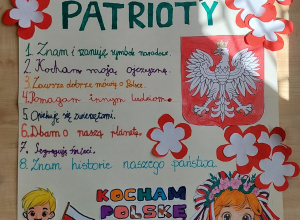 PATRIOTY
1. Znam i szanuję symbole narodowe.
2. Kocham moją ojczyznę.
3. Zawsze dobrze mówię o Polsce.
4. Pomagam innym ludziom.
5. Opiekuję się zwierzętami.
6. Dbam o naszą planetę.
7. Segreguję śmieci.
8. Znam historię naszego państwa.
KOCHAM
POLSKĘ